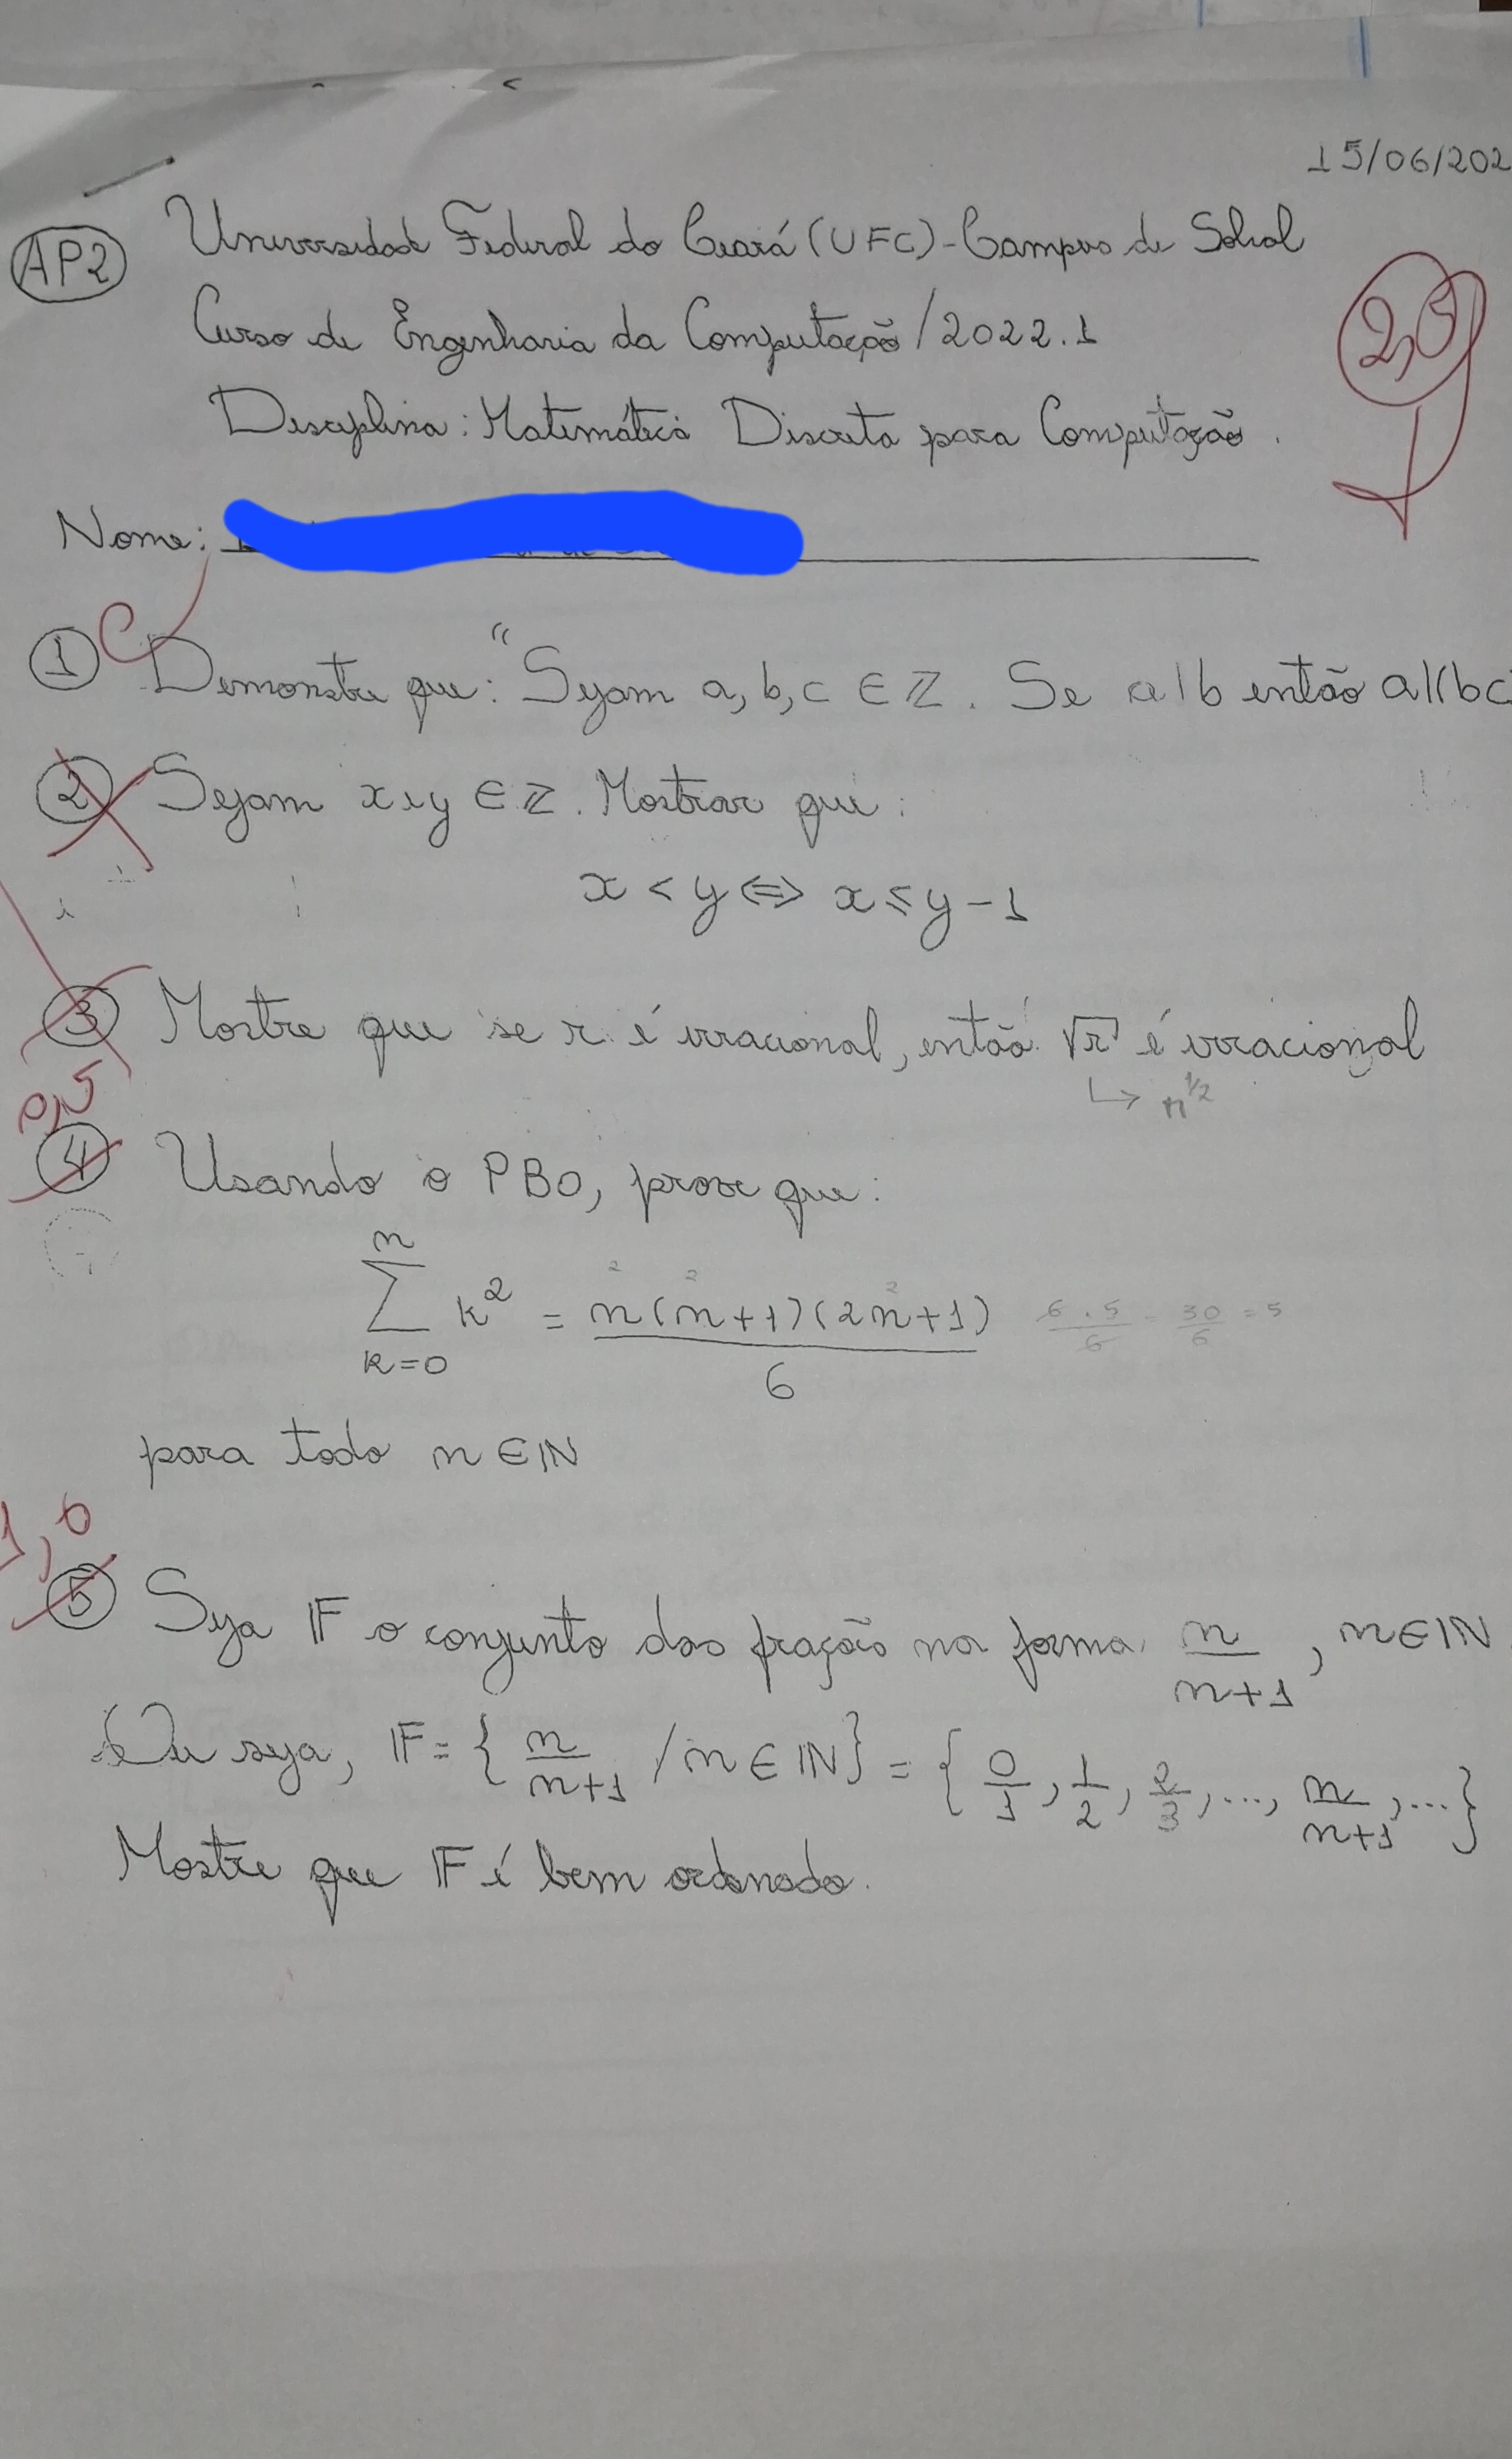 15/06/202
AP2 Universidade Federal do Ceará (UFC) - Campus de Sobral
Curso de Engenharia da Computação / 2022.1
2,5
Disciplina: Matemática Discreta para Computação.
Nome:
1 C Demonstre que: "Sejam a, b, c ∈ ℤ. Se a|b então a|(bc
2 Sejam x e y ∈ ℤ. Mostrar que:
x < y ⇔ x ≤ y - 1
3 Mostre que se r é irracional, então √r é irracional
↳ r^1/2
0,5
4 Usando o PBO, prove que:
n
∑ k² = n(n+1)(2n+1) / 6
k=0
6 . 5 / 6 = 30 / 6 = 5
para todo n ∈ IN
1,0
5 Seja IF o conjunto das frações na forma n/n+1, n ∈ IN
Ou seja, IF = { n/n+1 / n ∈ IN } = { 0/1, 1/2, 2/3, ..., n/n+1, ... }
Mostre que IF é bem ordenado.